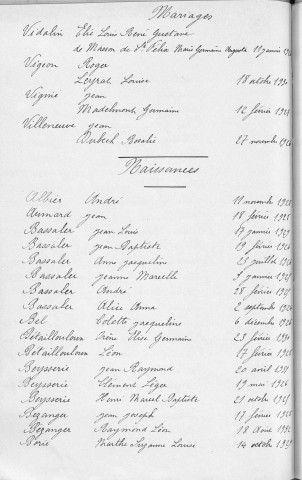 Mariages
Vidalin Elie Louis René Gustave
de Masson de St Félix Marie Germaine Augusta 11 janvier
Vigeon Roger
Leyrat Louise 18 octobre
Vignie Jean
Madelmont Germaine 12 février
Villeneuve Jean
Dubech Rosalie 27 novembre
Naissances
Albier André 11 novembre
Aumard Jean 18 février
Bassaler Jean Louis 17 janvier
Bassaler Jean Baptiste 19 février
Bassaler Anne Jacqueline 23 juillet
Bassaler Jeanne Marcelle 9 janvier
Bassaler André 28 février
Bassaler Alice Anna 2 septembre
Bel Colette Jacqueline 6 décembre
Bétaillouloux Irène Elise Germaine 23 février
Bétaillouloux Léon 17 février
Beysserie Jean Raymond 20 avril
Beysserie Clément Léger 19 mai
Beysserie Henri Marcel Baptiste 21 octobre
Bézanger Jean Joseph 17 février
Bézanger Raymond Léon 18 août
Borie Marthe Suzanne Louise 14 octobre